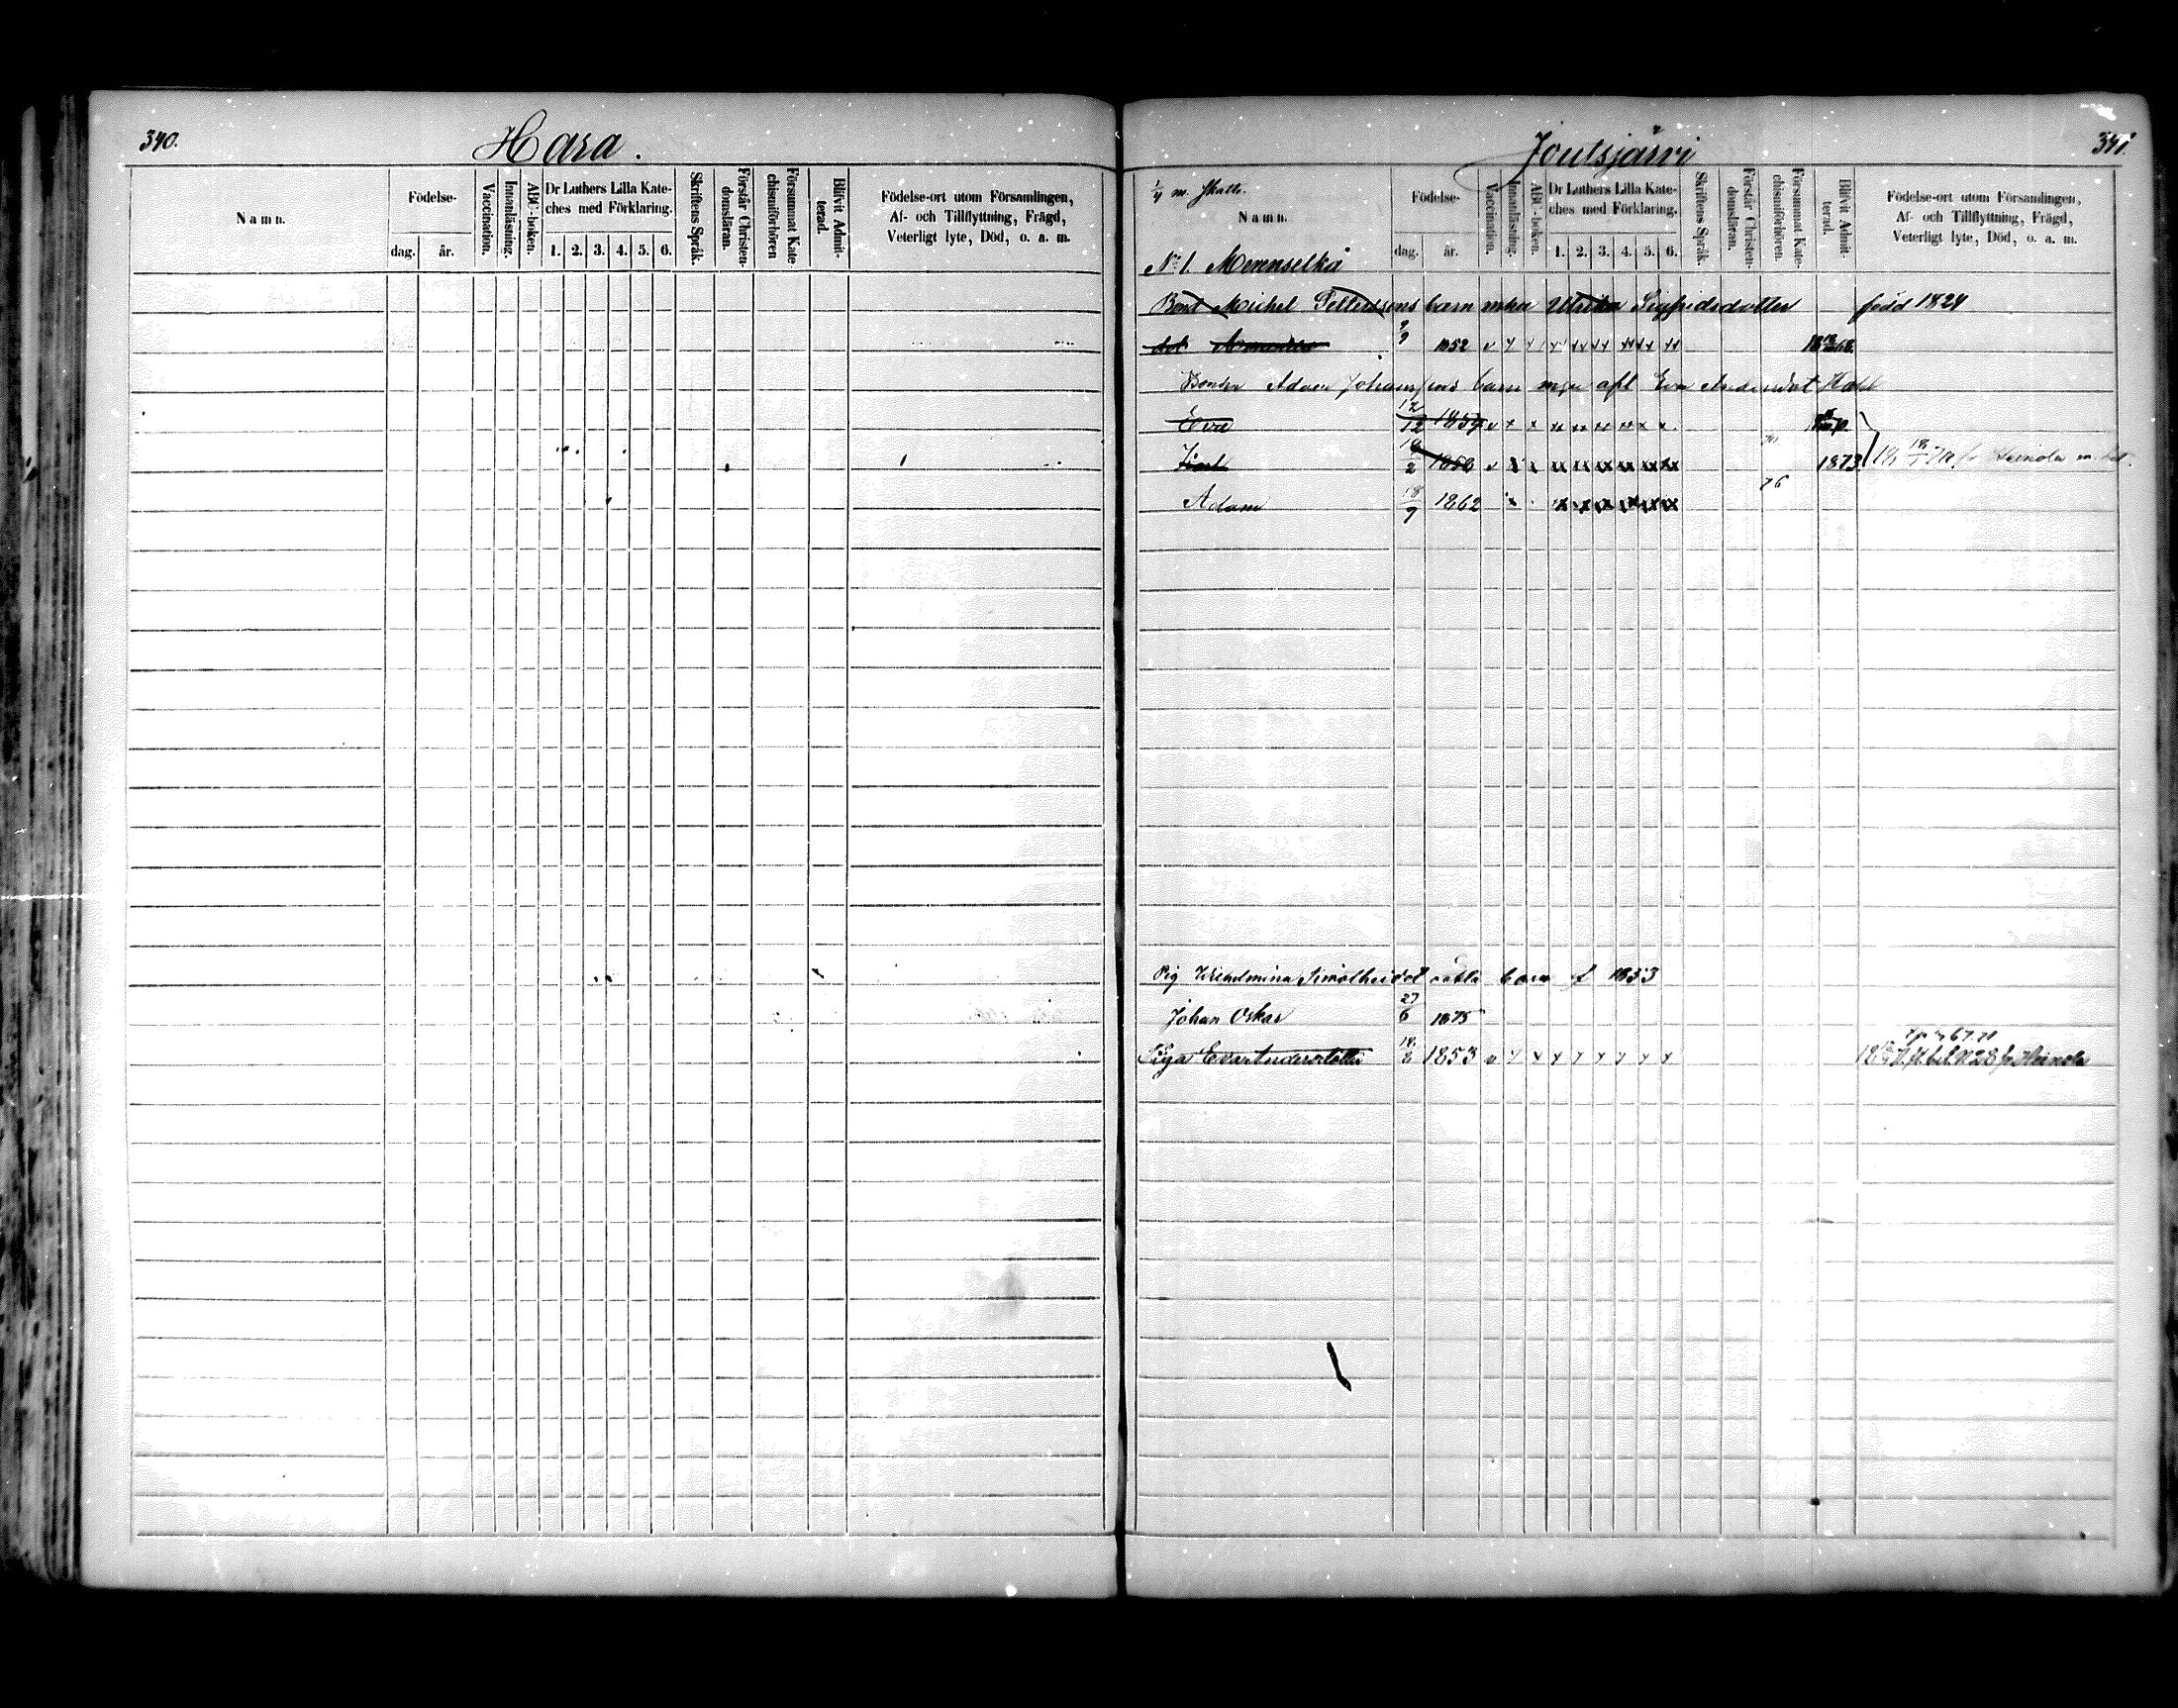 340.
Hara.
Namn.
Födelse-
dag.
år.
Vaccination.
Innanläsning.
ABC-boken.
Dr Luthers Lilla Kate-
ches med Förklaring.
1. 2. 3. 4. 5. 6.
Skriftens Språk.
Förstår Christen-
domsläran.
Försummat Kate-
chismiförhören
Blifvit Admit-
terad.
Födelse-ort utom Församlingen,
Af- och Tillflyttning, Frägd,
Veterligt lyte, Död, o. a. m.
Joutsjärvi
341.
1/4 m. Skatt.
Namn.
Födelse-
dag.
år.
Vaccination.
Innanläsning.
ABC-boken.
Dr Luthers Lilla Kate-
ches med Förklaring.
1. 2. 3. 4. 5. 6.
Skriftens Språk.
Förstår Christen-
domsläran.
Försummat Kate-
chismiförhören.
Blifvit Admit-
terad.
Födelse-ort utom Församlingen,
Af- och Tillflyttning, Frägd,
Veterligt lyte, Död, o. a. m.
No 1. Merenselkä
Bond Michel Pettersons barn m. Ulrika Sigfridsdotter född 1824
9/9 1852
Bonden Adam Johanssons barn m Eva
Eva 12/12 1854
2 1873
76
Adam 18/7 1862 x x x x x x
Pig Wilhelmina barn f 1853
Johan Oskar 27/6 1875
Piga Eva Andersdotter 18/8 1853 Heinola